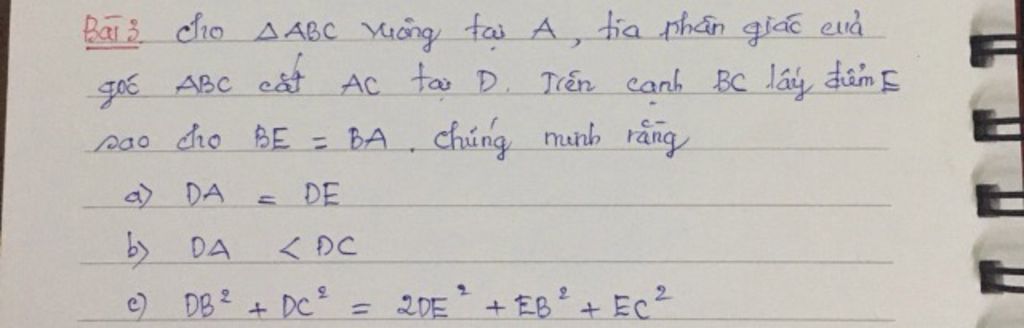 Bài 3 cho △ABC vuông tại A, tia phân giác của
góc ABC cắt AC tại D. Trên cạnh BC lấy điểm E
sao cho BE = BA. chứng minh rằng
a) DA = DE
b) DA < DC
c) DB² + DC² = 2DE² + EB² + EC²